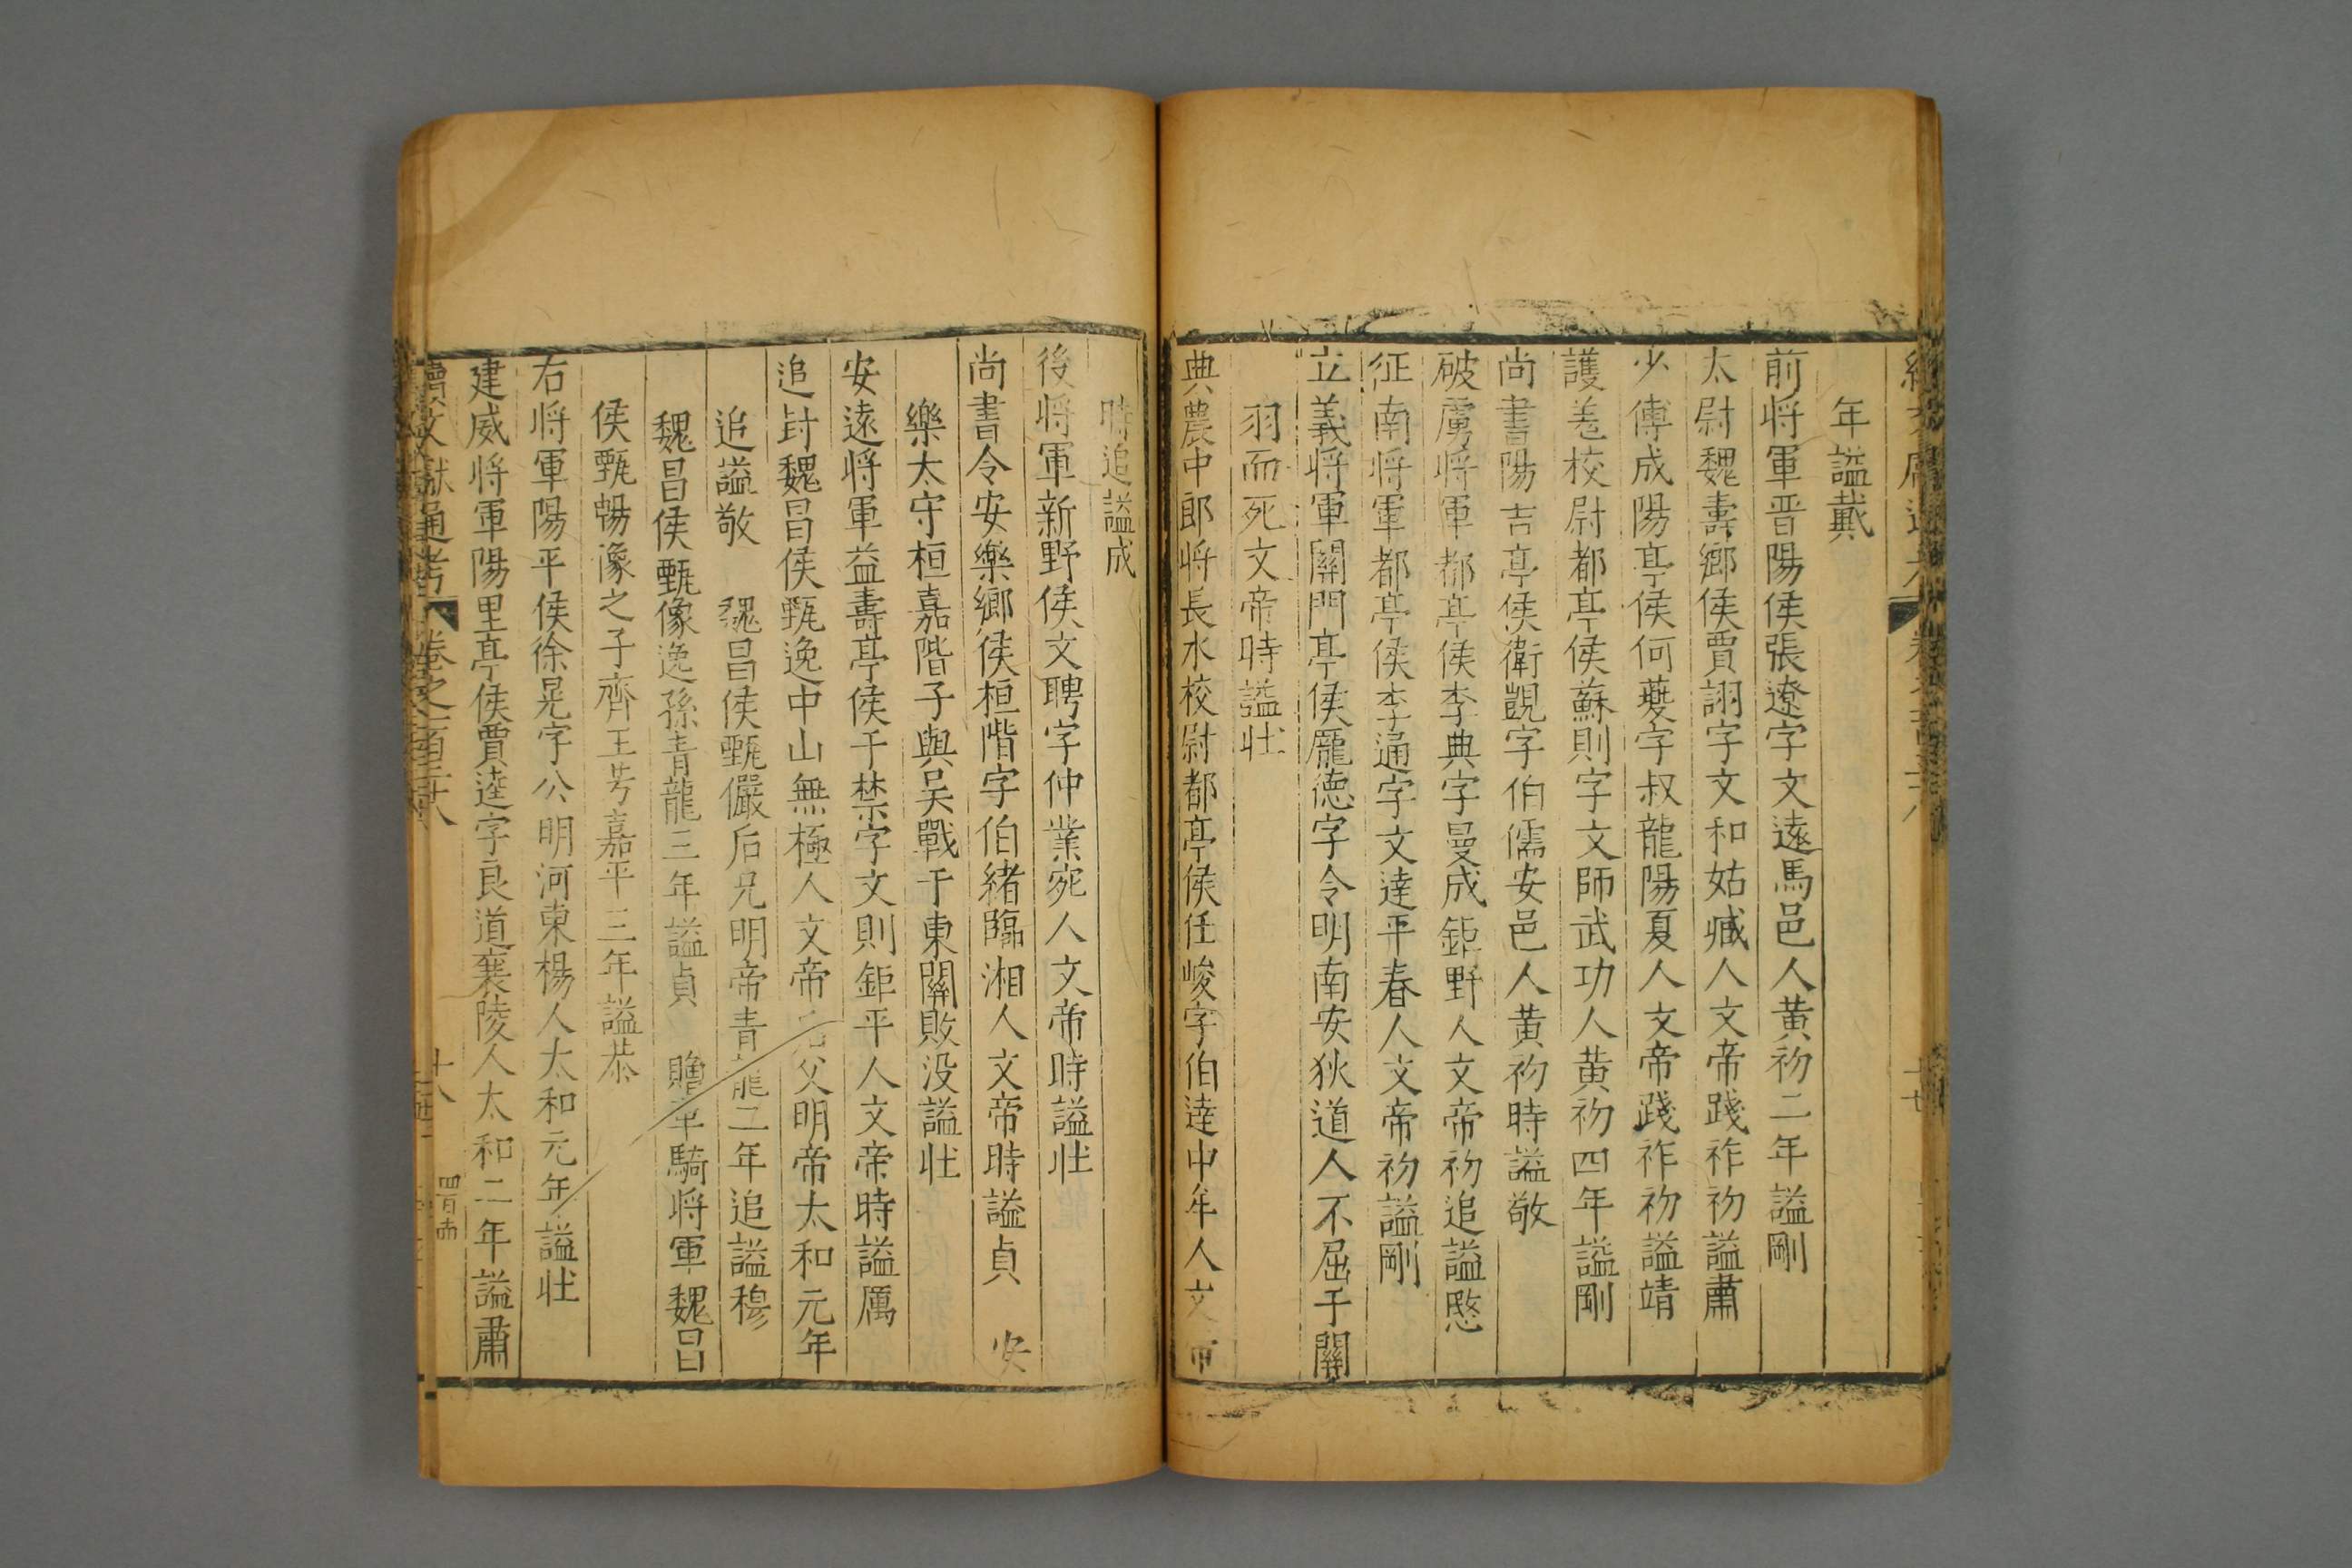 年謚戴
前将軍晋陽侯張遼字文遠馬邑人黄初二年謚剛
太尉魏壽鄉侯賈詡字文和姑臧人文帝踐祚初謚肅
少傅成陽亭侯何夔字叔龍陽夏人文帝踐祚初謚靖
護羗校尉都亭侯蘇則字文師武功人黄初四年謚剛
尚書陽吉亭侯衛覬字伯儒安邑人黄初時謚敬
破虜将軍都亭侯李典字曼成鉅野人文帝初追謚愍
征南将軍都亭侯李通字文達平春人文帝初謚剛
立義将軍關門亭侯龐徳字令明南安狄道人不屈于關
羽而死文帝時謚壯
典農中郎将長水校尉都亭侯任峻字伯達中牟人文帝
時追謚成
後将軍新野侯文聘字仲業宛人文帝時謚壯
尚書令安樂鄉侯桓階字伯緒臨湘人文帝時謚貞 安
樂太守桓嘉階子與吴戰于東關敗没謚壯
安遠将軍益壽亭侯于禁字文則鉅平人文帝時謚厲
追封魏昌侯甄逸中山無極人文帝后父明帝太和元年
追謚敬 魏昌侯甄儼后兄明帝青龍二年追謚穆
魏昌侯甄像逸孫青龍三年謚貞 贈車騎将軍魏昌
侯甄暢像之子齊王芳嘉平三年謚恭
右将軍陽平侯徐晃字公明河東楊人太和元年謚壯
建威将軍陽里亭侯賈逵字良道襄陵人太和二年謚肅
續文獻通考 卷之一百三十八 十八